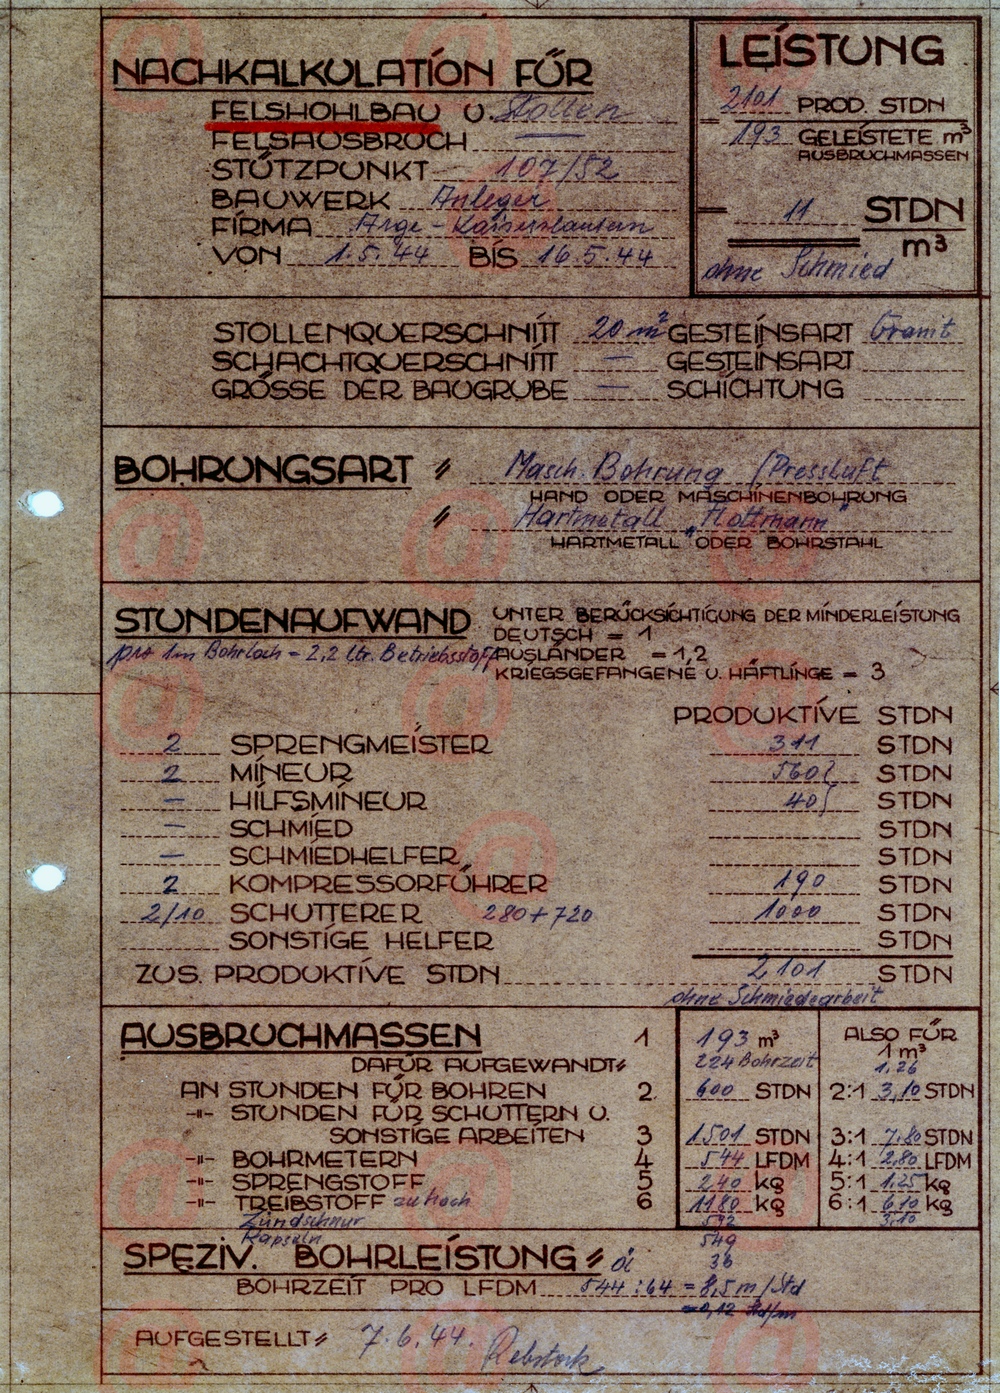 NACHKALKULATION FÜR
FELSHOHLBAU U. Stollen
FELSAUSBRUCH
STÜTZPUNKT 107/52
BAUWERK Anleger
FIRMA Arge - Kaiserslautern
VON 1.5.44 BIS 16.5.44
LEISTUNG
2101 PROD. STDN
193 GELEISTETE m³
AUSBRUCHMASSEN
11 STDN
m³
ohne Schmied
STOLLENQUERSCHNITT 20 m² GESTEINSART Granit
SCHACHTQUERSCHNITT — GESTEINSART
GRÖSSE DER BAUGRUBE — SCHICHTUNG
BOHRUNGSART Masch. Bohrung / Pressluft
HAND ODER MASCHINENBOHRUNG
Hartmetall „Flottmann"
HARTMETALL ODER BOHRSTAHL
STUNDENAUFWAND UNTER BERÜCKSICHTIGUNG DER MINDERLEISTUNG
DEUTSCH = 1
pro 1m Bohrloch = 2,2 ltr. Betriebsstoff AUSLÄNDER = 1,2
KRIEGSGEFANGENE U. HÄFTLINGE = 3
PRODUKTIVE STDN
2 SPRENGMEISTER 311 STDN
2 MINEUR 560 STDN
— HILFSMINEUR 40 STDN
— SCHMIED STDN
— SCHMIEDHELFER STDN
2 KOMPRESSORFÜHRER 190 STDN
2/10 SCHUTTERER 280+720 1000 STDN
SONSTIGE HELFER STDN
ZUS. PRODUKTIVE STDN 2101 STDN
ohne Schmiedearbeit
AUSBRUCHMASSEN 1 193 m³ ALSO FÜR
1 m³
DAFÜR AUFGEWANDT 224 Bohrzeit 1,26
AN STUNDEN FÜR BOHREN 2 600 STDN 2:1 3,10 STDN
-"- STUNDEN FÜR SCHUTTERN U.
SONSTIGE ARBEITEN 3 1501 STDN 3:1 7,80 STDN
-"- BOHRMETERN 4 544 LFDM 4:1 2,80 LFDM
-"- SPRENGSTOFF 5 240 kg 5:1 1,25 kg
-"- TREIBSTOFF zu hoch 6 1180 kg 6:1 6,10 kg
Zündschnur 592 3,10
Kapseln 549
SPEZIV. BOHRLEISTUNG 36
BOHRZEIT PRO LFDM 544 : 64 = 8,5 m/Std
= 0,12 Std/m
AUFGESTELLT 7.6.44. Rebstock